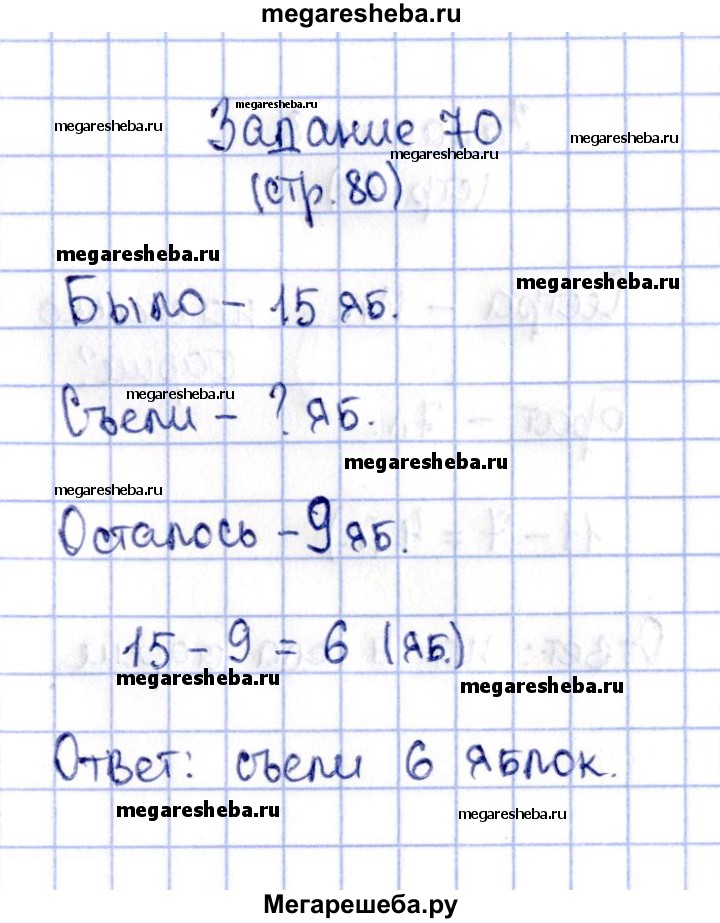 megaresheba.ru
megaresheba.ru
megaresheba.ru
Задание 70
megaresheba.ru
megaresheba.ru
(стр. 80)
megaresheba.ru
megaresheba.ru
Было – 15 яб.
megaresheba.ru
Съели – ? яб.
megaresheba.ru
megaresheba.ru
Осталось – 9 яб.
15 – 9 = 6 (яб.)
megaresheba.ru
megaresheba.ru
Ответ: съели 6 яблок.
megaresheba.ru
megaresheba.ru
Мегарешеба.ру